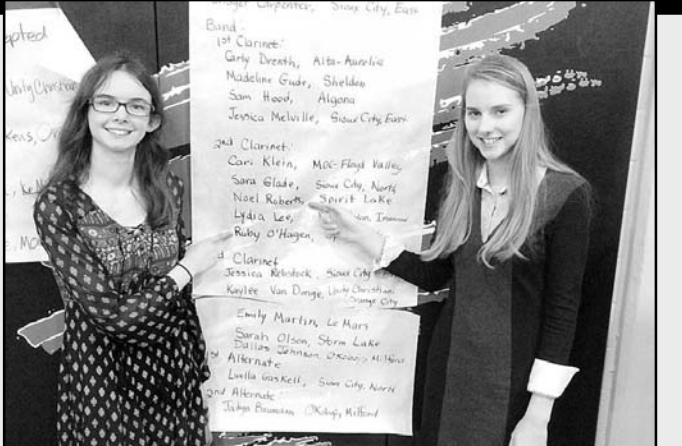 Carpenter, Sioux City, East
Band:
1st Clarinet:
Carly Drenth, Alta-Aurelia
Madeline Gude, Sheldon
Sam Hood, Algona
Jessica Melville, Sioux City, East
2nd Clarinet:
Cari Klein, MOC-Floyd Valley
Sara Glade, Sioux City, North
Noel Roberts, Spirit Lake
Lydia Lee,
Ruby O'Hagen,
Clarinet
Jessica Rebstock, Sioux City
Kaylee Van Donge, Unity Christian
Orange City
Emily Martin, Le Mars
Sarah Olson, Storm Lake
Dallas Johnson, Okoboji, Milford
Alternate
Luella Gaskell, Sioux City, North
2nd Alternate:
Okoboji, Milford
Unity Christian